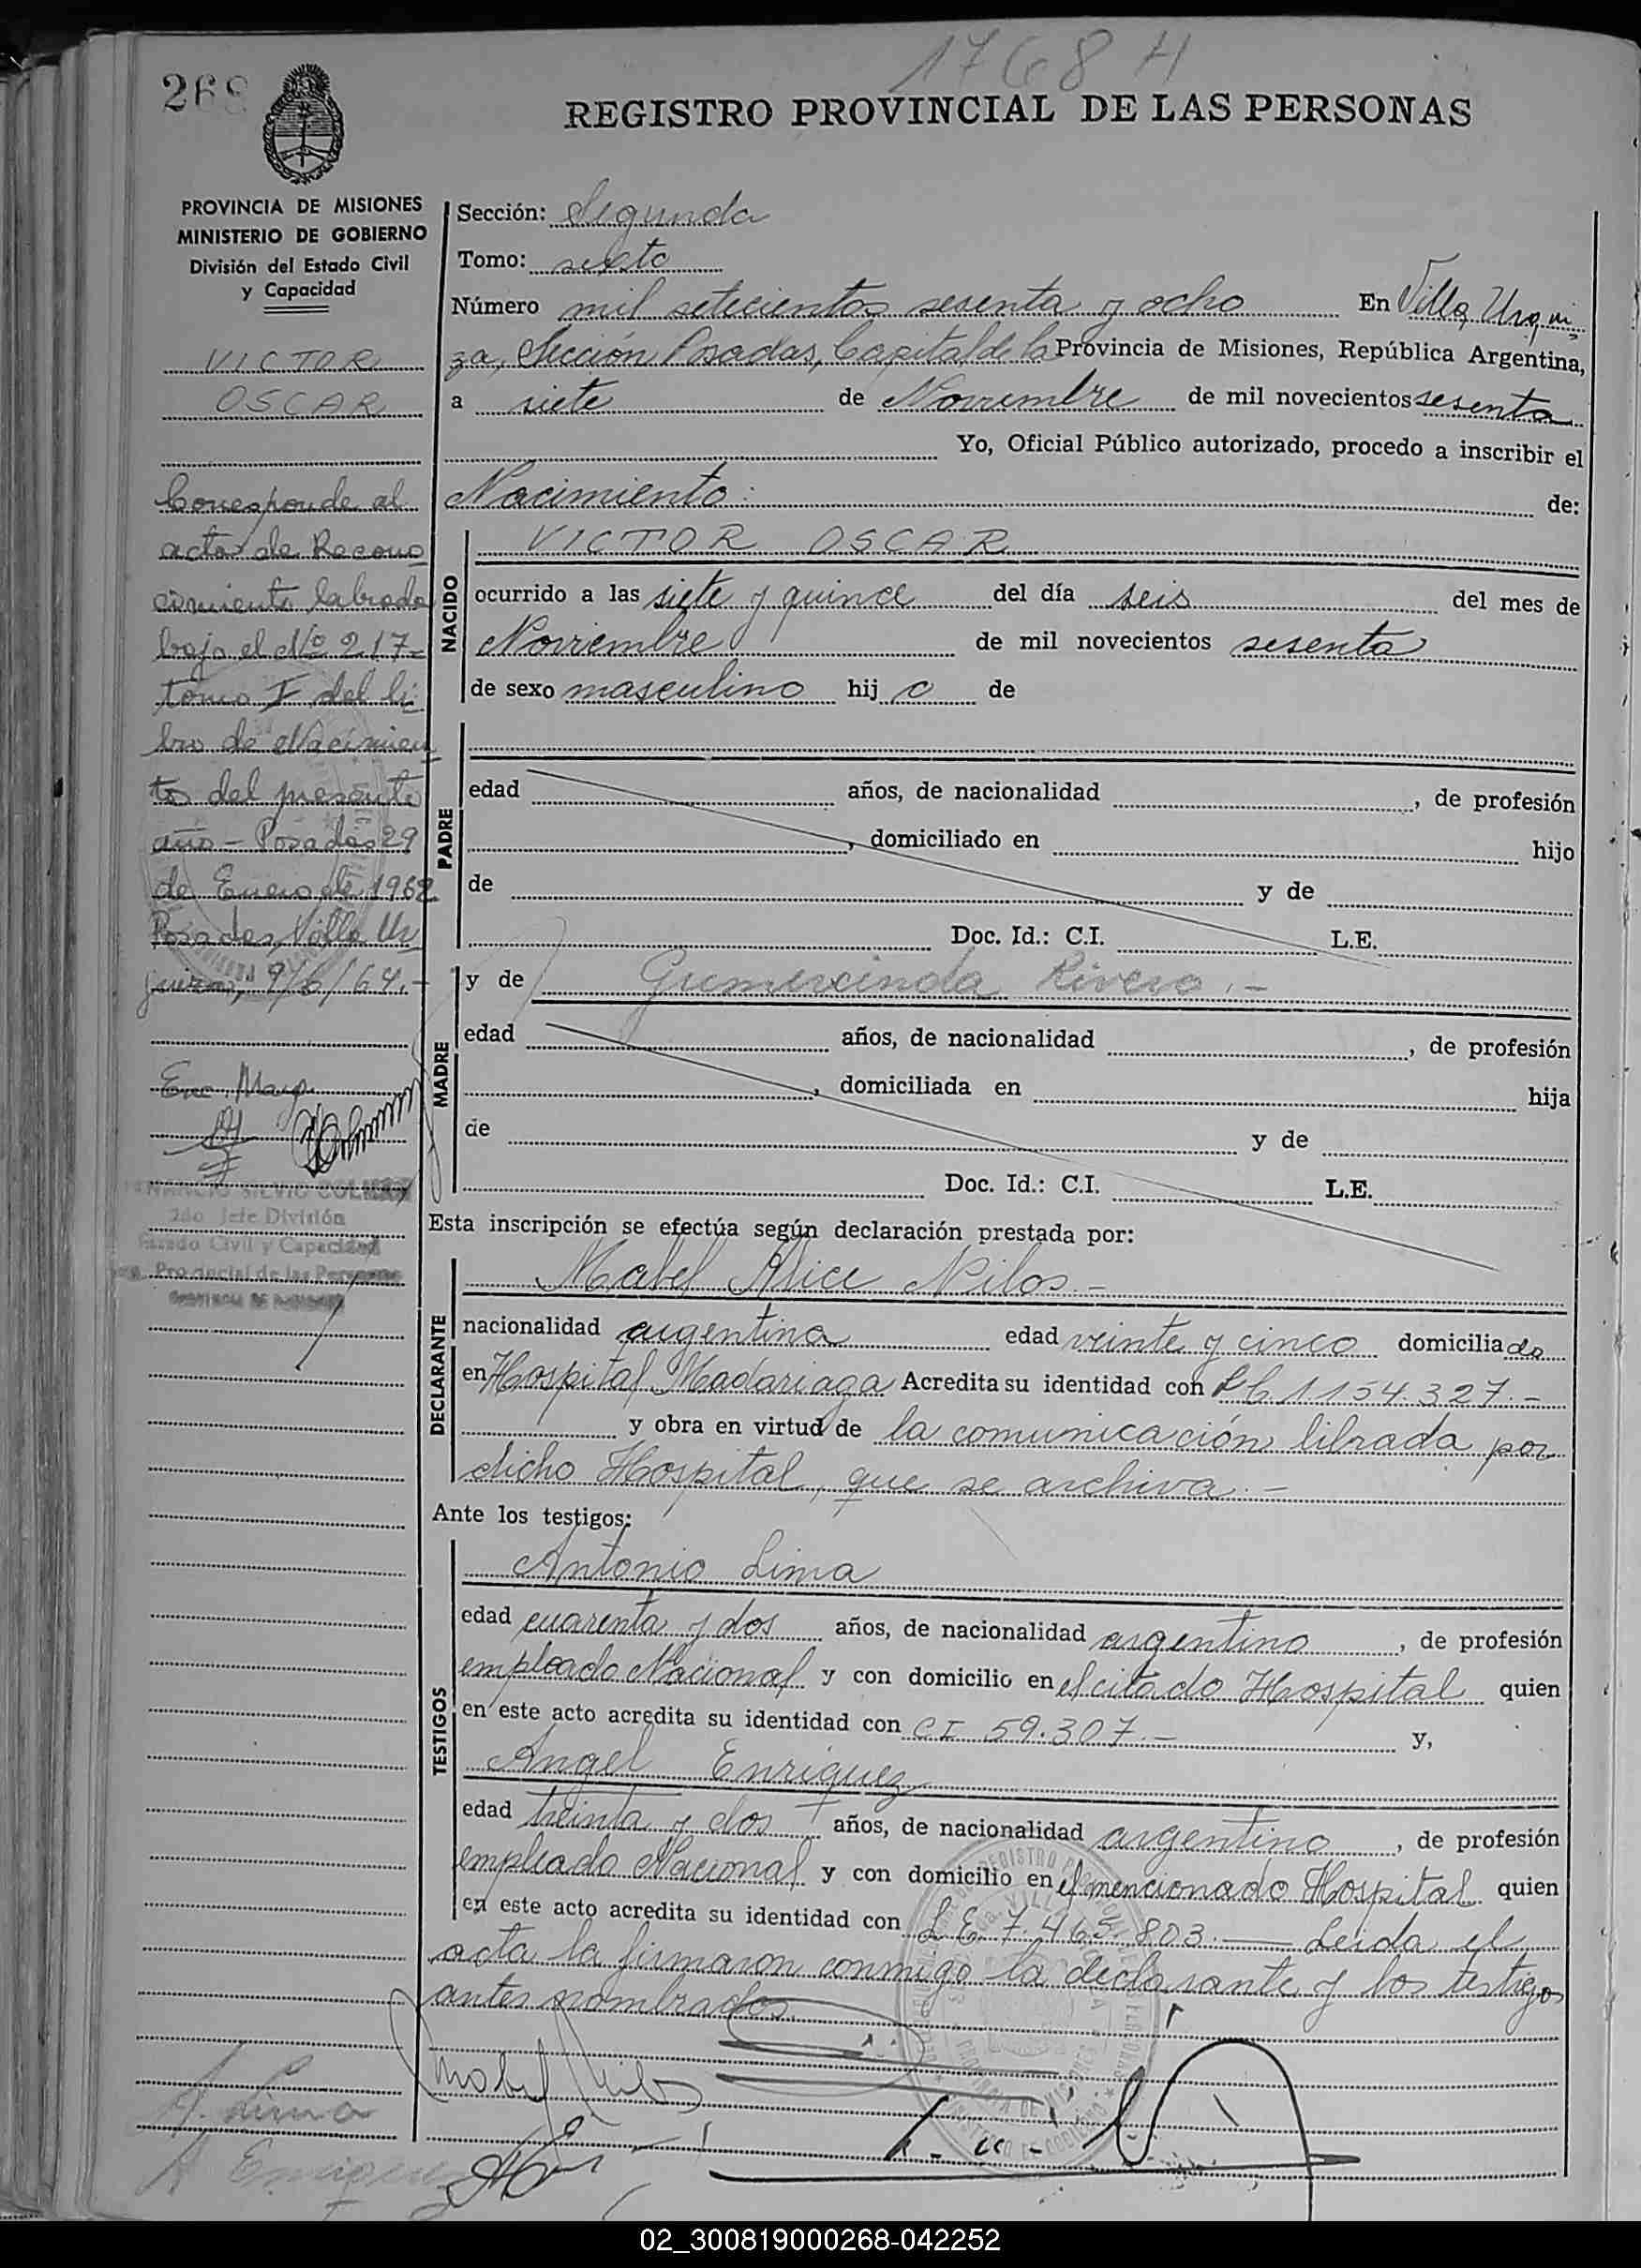 1768 H
268
REGISTRO PROVINCIAL DE LAS PERSONAS
PROVINCIA DE MISIONES
MINISTERIO DE GOBIERNO
División del Estado Civil
y Capacidad
VICTOR
OSCAR
Corresponde al
acta de Recono
cimiento labrada
bajo el Nº 217-
tomo I del li
bro de Nacimien
to del presente
año - Posadas 29
de Enero de 1962
Posadas, Villa Ur
quiza, 9/6/64.-
Enc. Mayo
SILVIO
2do Jefe División
Estado Civil y Capacidad
Provincial de las Personas
Sección: Segunda
Tomo: sexto
Número mil setecientos sesenta y ocho En Villa Urqui
za, Sección Posadas, Capital de la Provincia de Misiones, República Argentina,
a siete de Noviembre de mil novecientos sesenta
Yo, Oficial Público autorizado, procedo a inscribir el
Nacimiento: de:
NACIDO
VICTOR OSCAR
ocurrido a las siete y quince del día seis del mes de
Noviembre de mil novecientos sesenta
de sexo masculino hij o de
PADRE
edad años, de nacionalidad , de profesión
, domiciliado en hijo
de y de
Doc. Id.: C.I. L.E.
MADRE
y de Gumercinda Rivero.-
edad años, de nacionalidad , de profesión
, domiciliada en hija
de y de
Doc. Id.: C.I. L.E.
Esta inscripción se efectúa según declaración prestada por:
DECLARANTE
Mabel Alice Nilos.-
nacionalidad argentina edad veinte y cinco domiciliada
en Hospital Madariaga Acredita su identidad con 1154.327.-
y obra en virtud de la comunicación librada por
dicho Hospital, que se archiva.-
Ante los testigos:
TESTIGOS
Antonio Lima
edad cuarenta y dos años, de nacionalidad argentino , de profesión
empleado Nacional y con domicilio en el citado Hospital quien
en este acto acredita su identidad con CI 59.307.- y,
Angel Enriquez
edad treinta y dos años, de nacionalidad argentino , de profesión
empleado Nacional y con domicilio en el mencionado Hospital quien
en este acto acredita su identidad con L E 7.465.803.— Leida el
acta la firmaron conmigo la declarante y los testigos
antes nombrados.
Mabel Nilos
A. Lima
A Enriquez
02_300819000268-042252